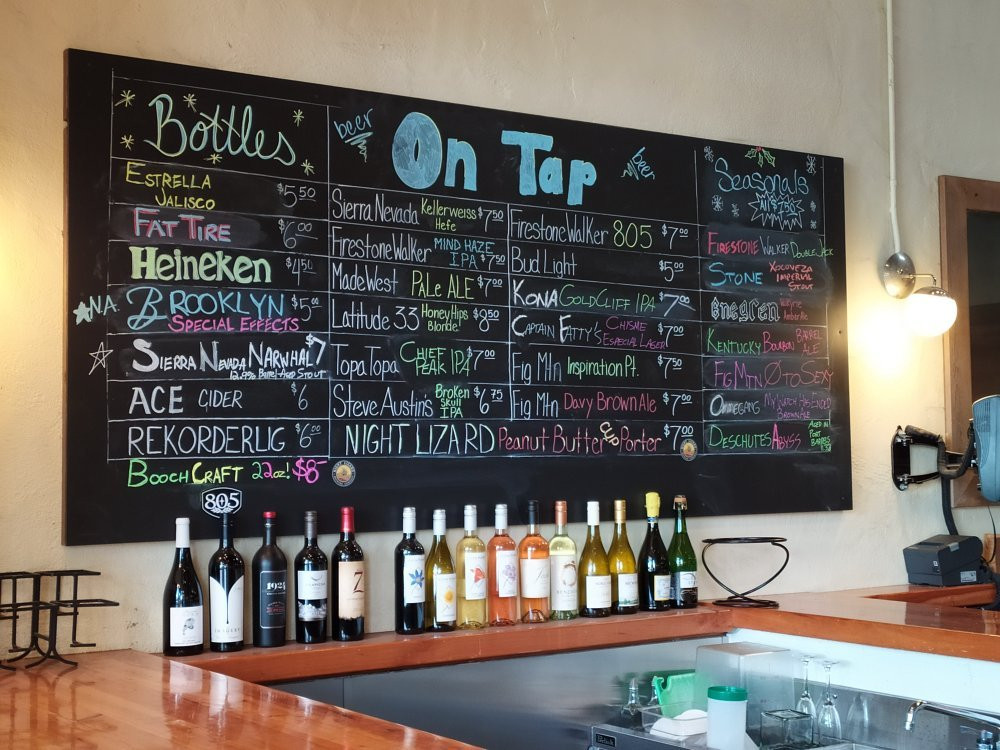 Bottles
ESTRELLA JALISCO $5.50
FAT TIRE $6.00
Heineken $4.50
NA. BROOKLYN $5.00
SPECIAL EFFECTS
SIERRA NEVADA NARWHAL $7
ACE CIDER $6
REKORDERLIG $6.00
BOOCHCRAFT 22oz! $8-
805
beer On Tap beer
Sierra Nevada Kellerweiss Hefe $7.50
Firestone Walker MIND HAZE IPA $7.50
MadeWest PALE ALE $7.00
Latitude 33 Honey Hips Blonde! $8.50
Topa Topa CHIEF PEAK IPA $7.00
Steve Austin's Broken Skull IPA $6.75
Firestone Walker 805 $7.00
Bud Light $5.00
KONA GOLD CLIFF IPA $7.00
CAPTAIN FATTY'S CHISME ESPECIAL LAGER $7.00
Fig Mtn Inspiration Pt. $7.50
Fig Mtn Davy Brown Ale $7.00
NIGHT LIZARD Peanut Butter CUP Porter $7.00
Seasonals
All $7.50
FIRESTONE WALKER DOUBLE JACK
STONE XOCOVEZA IMPERIAL STOUT
Amber Ale
KENTUCKY BOURBON BARREL ALE
FIG MTN 0 TO SEXY
OMMEGANG
BROWN ALE
DESCHUTES ABYSS AGED IN PORT BARRELS
1924
Z